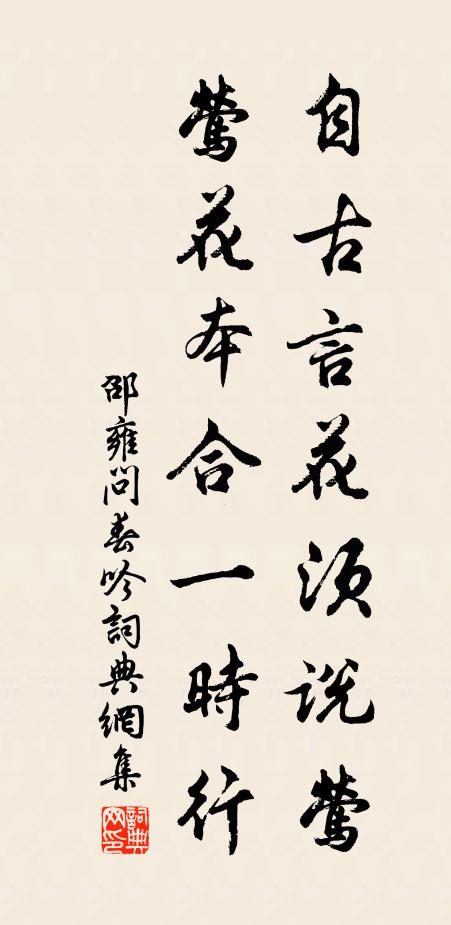 自古言花須說鶯
鶯花本合一時行
邵雍問春吟詞典網集
詞典網印